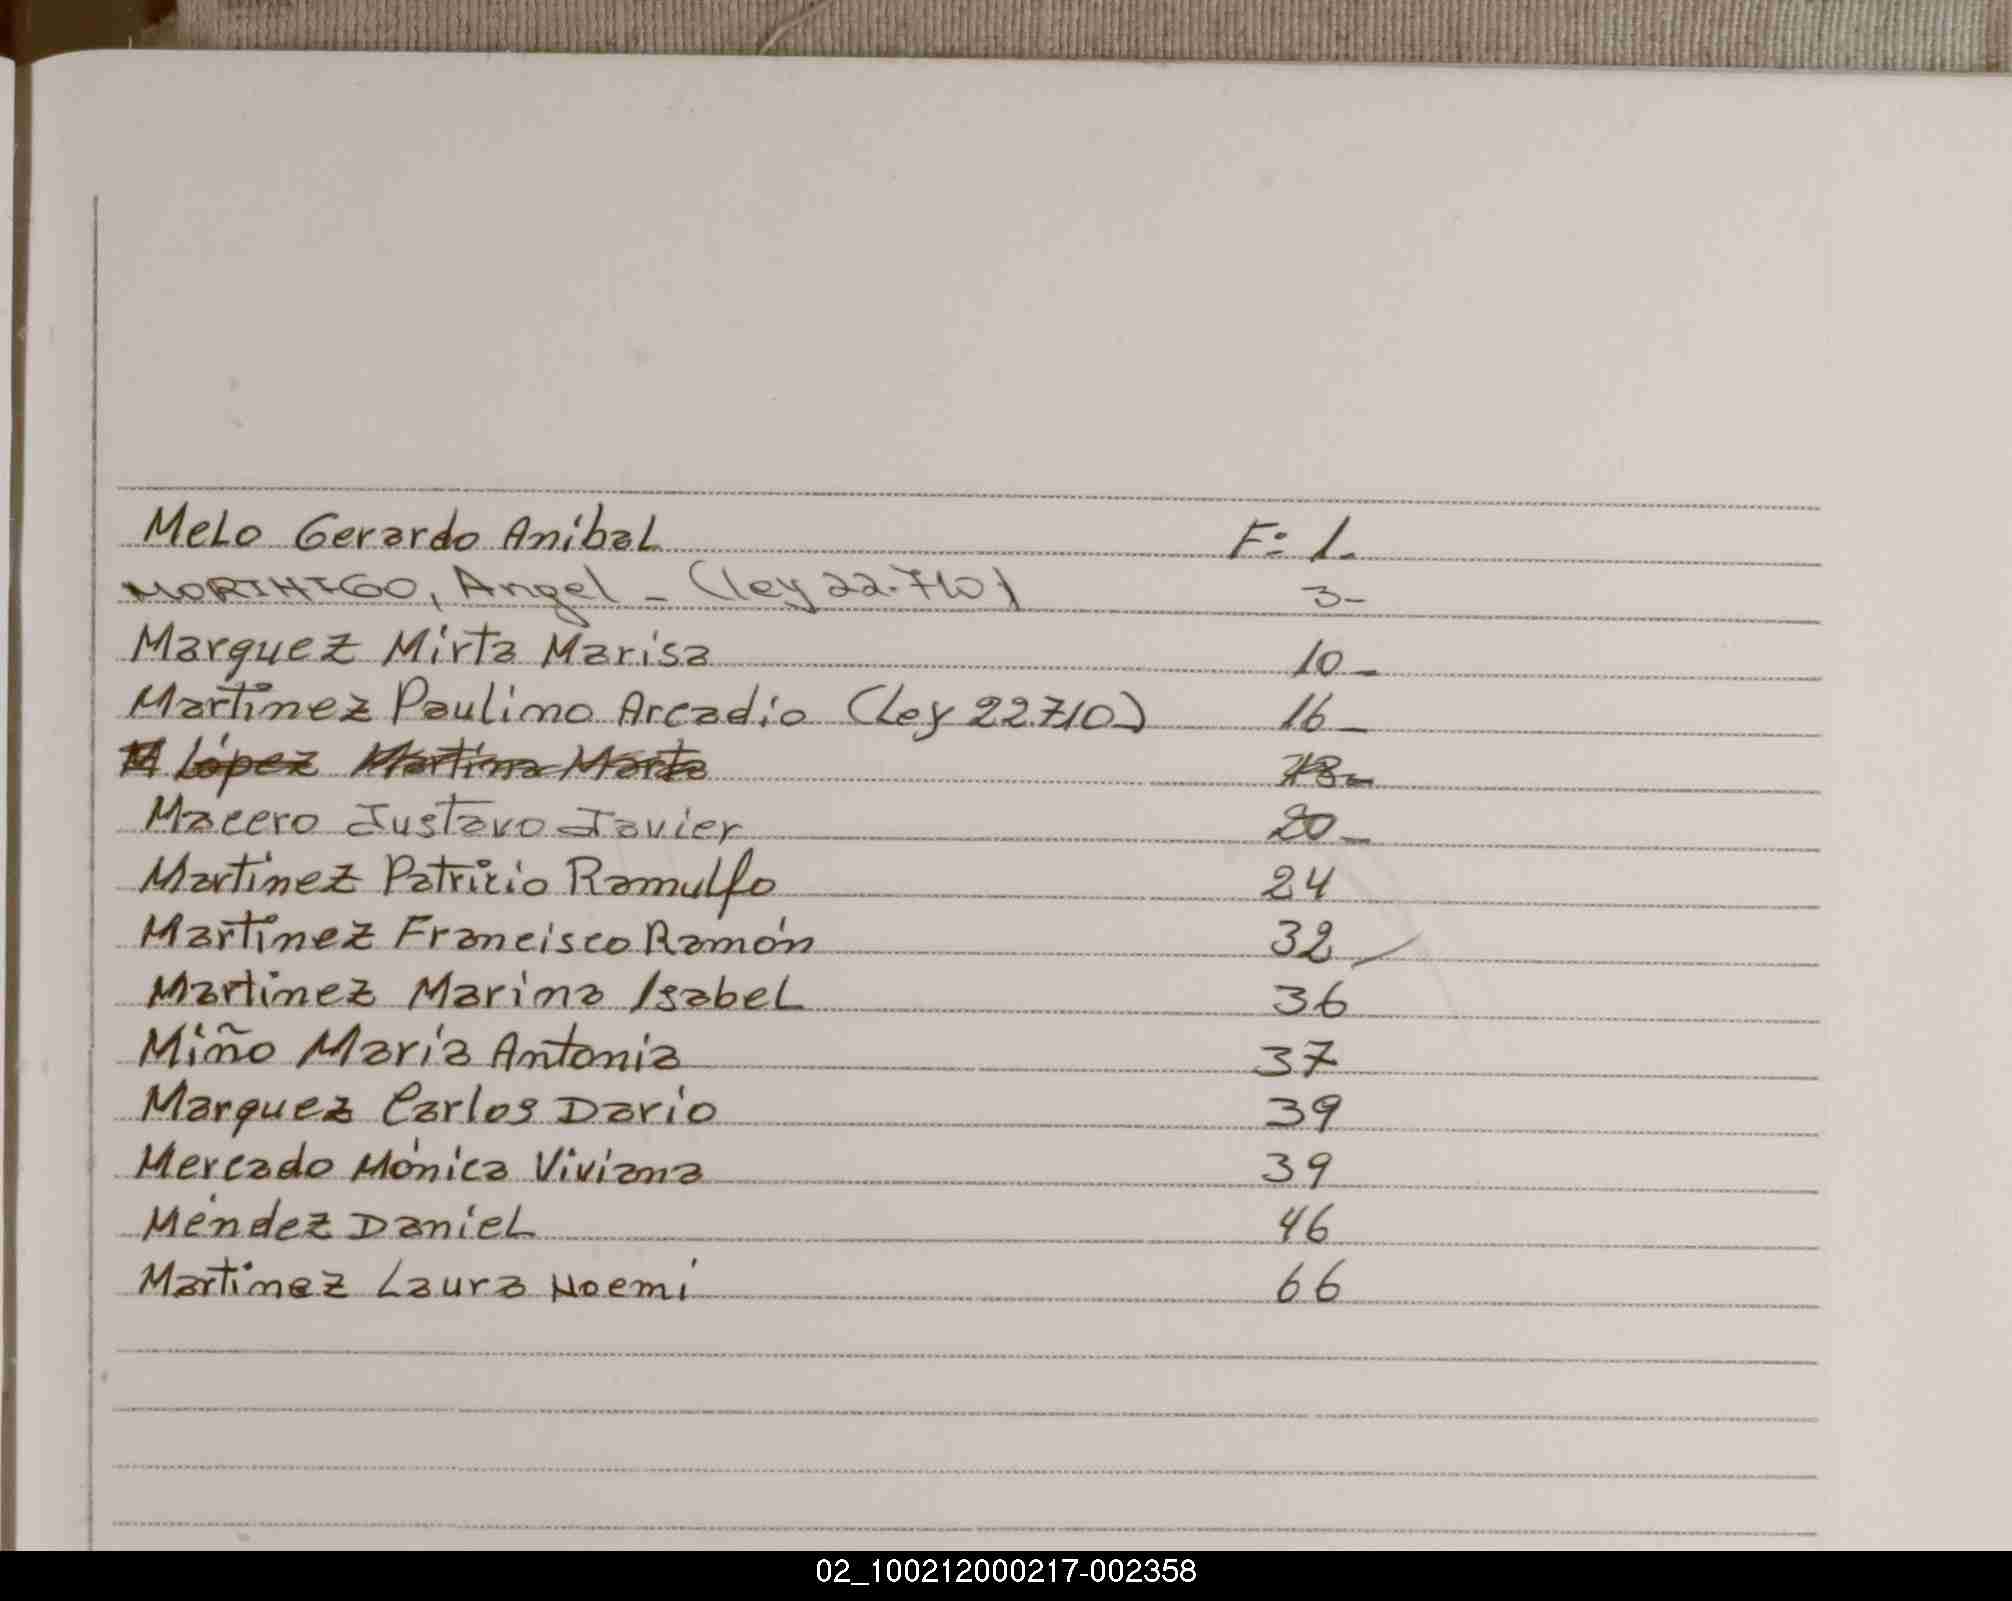 Melo Gerardo Anibal F: 1.
MORINIGO, Angel - (ley 22.710) 3-
Marquez Mirta Marisa 10-
Martinez Paulino Arcadio (Ley 22.710) 16-
M López Martina Marta 18-
Macero Justavo Javier 20-
Martinez Patricio Ramulfo 24
Martinez Francisco Ramón 32
Martinez Marina Isabel 36
Miño María Antonia 37
Marquez Carlos Dario 39
Mercado Mónica Viviana 39
Méndez Daniel 46
Martinez Laura Noemí 66
02_100212000217-002358